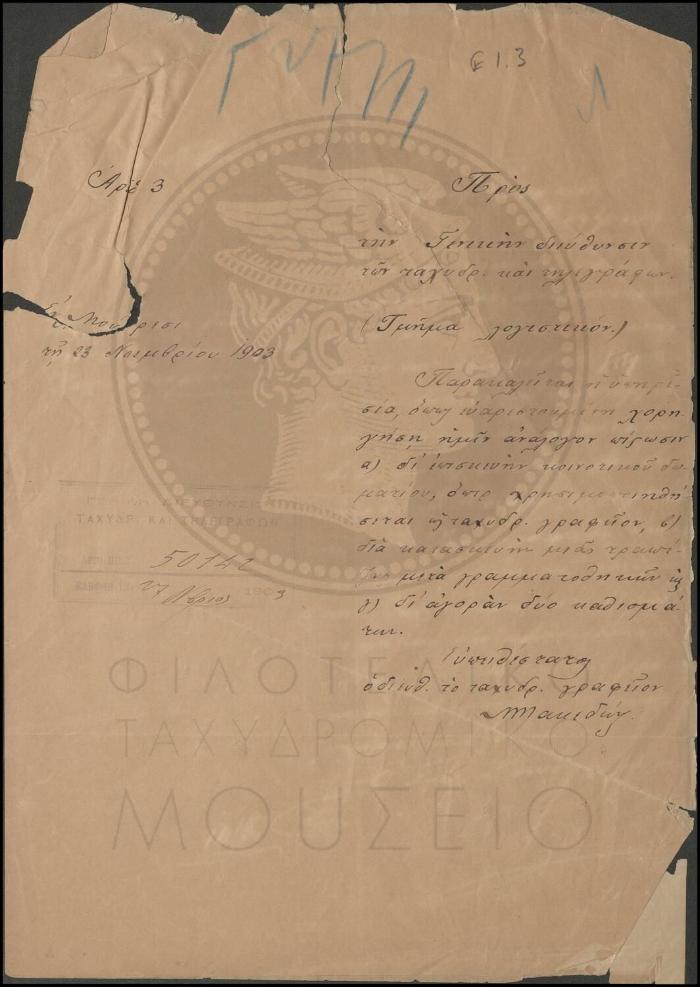 Ε1.3
Ἀρθ 3
Πρὸς
τὴν Γενικὴν διεύθυνσιν
τῶν ταχυδρ. καὶ τηλεγράφων.
(Τμῆμα λογιστικόν.)
Ἐν
τῇ 23 Νοεμβρίου 1903
Παρακαλεῖται ἡ ὑπηρε
σία, ὅπως εὐαριστουμένη χορη
γήσῃ ἡμῖν ἀνάλογον πίστωσιν
α) δι' ἐπισκευὴν κοινοτικοῦ δω
ματίου, ὅπερ χρησιμοποιηθή
σεται ὡς ταχυδρ. γραφεῖον, β)
διὰ κατασκευὴν μιᾶς τραπέ
ζης μετὰ γραμματοθηκῶν καὶ
γ) δι' ἀγορὰν δύο καθισμά
των.
Εὐπειθέστατος
ὁ διευθ. τὸ ταχυδρ. γραφεῖον
ΓΕΝΙΚΗ ΔΙΕΥΘΥΝΣΙΣ
ΤΑΧΥΔΡ. ΚΑΙ ΤΗΛΕΓΡΑΦΩΝ
ΑΡΙΘ. ΠΡ. 50142
27 Νβρίος 1903
ΦΙΛΟΤΕΛΙΚΟ
ΤΑΧΥΔΡΟΜΙΚΟ
ΜΟΥΣΕΙΟ